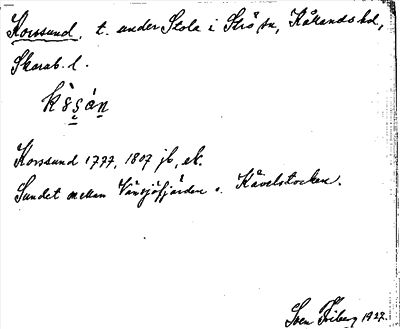 Korssund, t. under Stola i Strö sn, Kålands hd,
Skarab. l.
Korssund 1777, 1807 jb, ek.
Sundet mellan Vänsjöfjärden o. Kävelstocken.
Sven Friberg 1927.